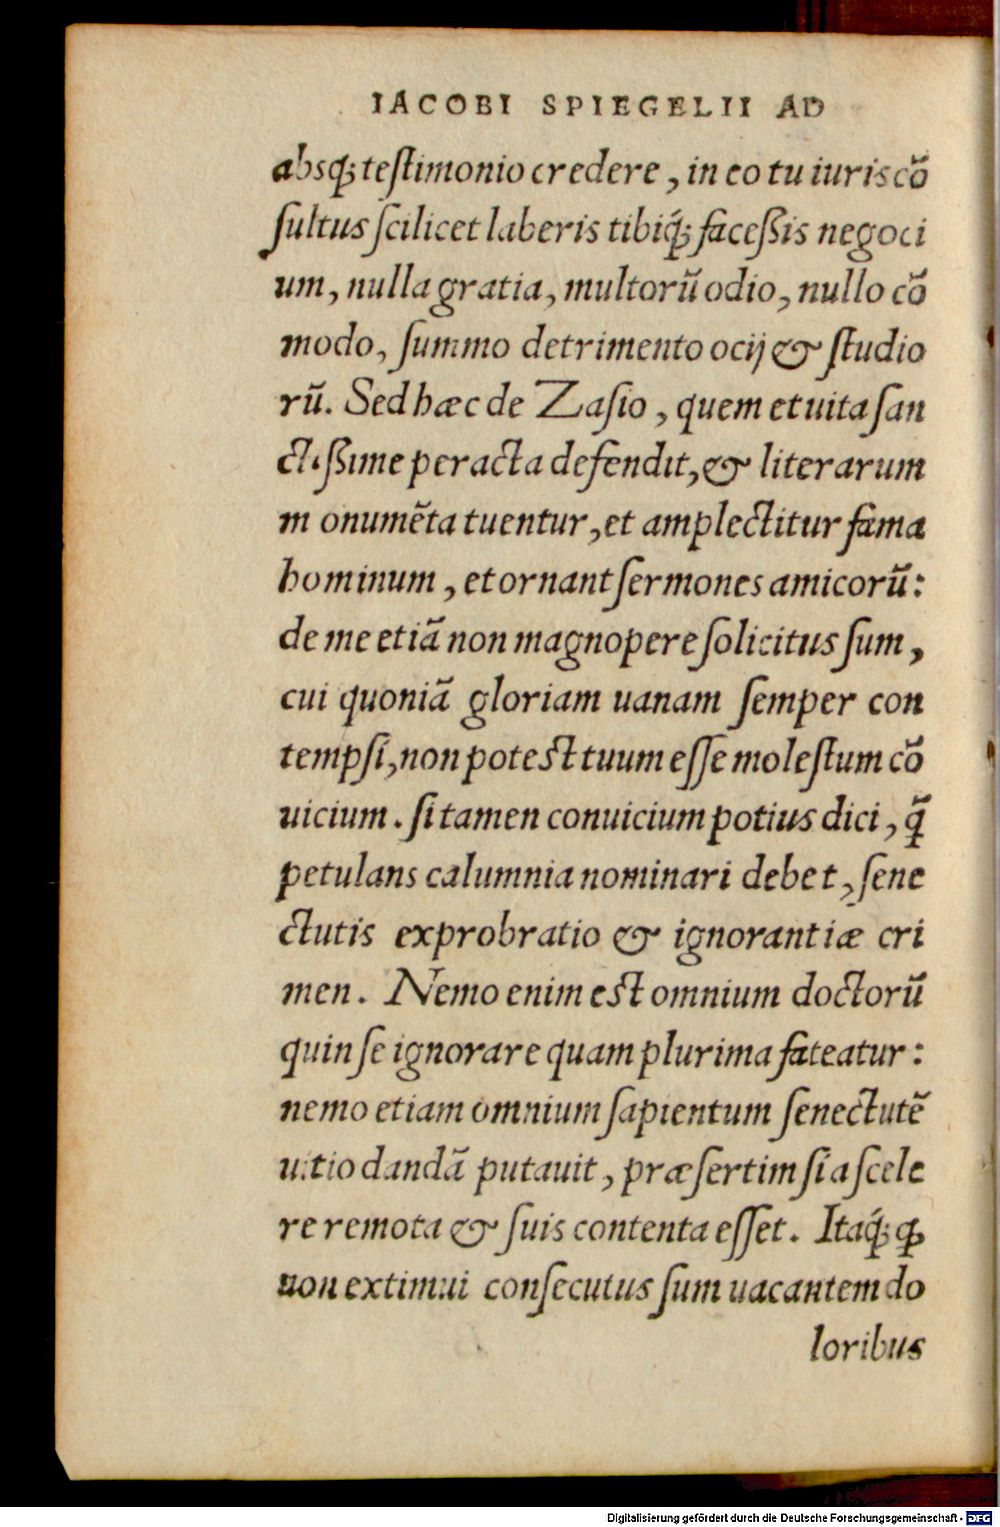 IACOBI SPIEGELII AD
absq́; testimonio credere, in eo tu iuriscō
sultus scilicet laberis tibiq́; facessis negoci
um, nulla gratia, multorū odio, nullo cō
modo, summo detrimento ocij & studio
rū. Sed hæc de Zasio, quem et uita san
ctissime peracta defendit, & literarum
m onumēta tuentur, et amplectitur fama
hominum, et ornant sermones amicorū:
de me etiā non magnopere solicitus sum,
cui quoniā gloriam uanam semper con
tempsi, non potest tuum esse molestum cō
uicium. si tamen conuicium potius dici, q̄
petulans calumnia nominari debet, sene
ctutis exprobratio & ignorantiæ cri
men. Nemo enim est omnium doctorū
quin se ignorare quam plurima fateatur:
nemo etiam omnium sapientum senectutē
uitio dandā putauit, præsertim si a scele
re remota & suis contenta esset. Itaq́; ꝙ
non extimui consecutus sum uacantem do
loribus
Digitalisierung gefördert durch die Deutsche Forschungsgemeinschaft - DFG